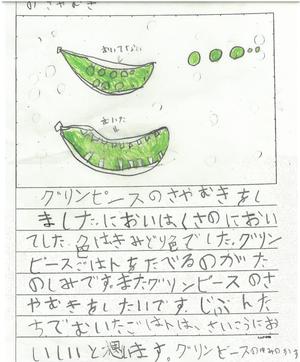 のさやむき
むいてない
むいた
グリンピースのさやむきをし
ました。においはくさのにおい
でした。色はきみどり色でした。グリン
ピースごはんをたべるのがた
のしみです。またグリンピースのさ
やむきをしたいです。じぶんた
ちでむいたごはんは、さいこうにお
いしいと思います。グリンピースの